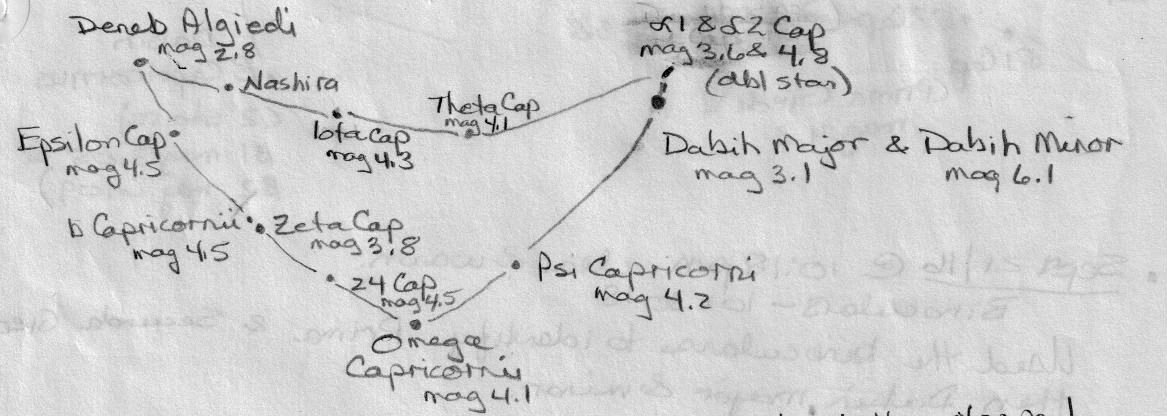 Deneb Algiedi
mag 2.8
Nashira
Iota Cap
mag 4.3
Theta Cap
mag 4.1
α1 & α2 Cap
mag 3.6 & 4.8
(dbl star)
Dabih Major & Dabih Minor
mag 3.1 mag 6.1
Epsilon Cap
mag 4.5
b Capricornii
mag 4.5
Zeta Cap
mag 3.8
24 Cap
mag 4.5
Psi Capricorni
mag 4.2
Omega
Capricornii
mag 4.1